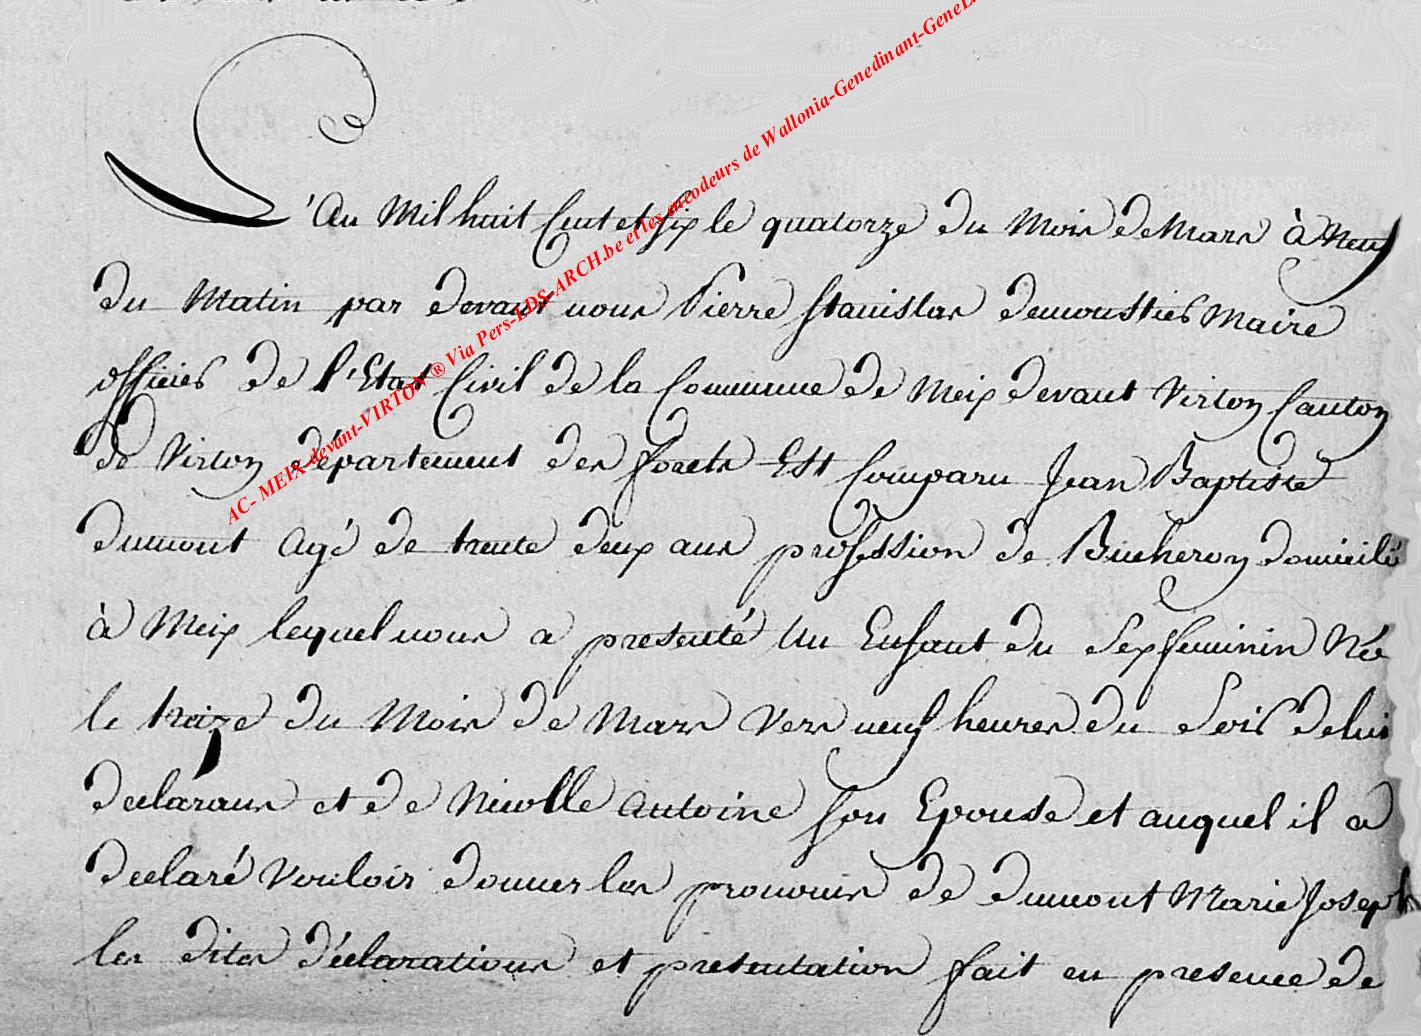 L'An Mil huit Cent et six le quatorze du Mois de Mars à Neuf
du Matin par devant nous Pierre Stanislas demoustier Maire
officier de l'Etat Civil de la Commune de Meix devant Virton Canton
de Virton département des forets Est Comparu Jean Baptiste
dumont agé de trente deux ans profession de Bucheron domicilé
à Meix lequel nous a presenté Un Enfant du Sex feminin Née
le treize du Mois de Mars Vers neuf heures du Soir de lui
declarans et de Nicolle antoine son Epouse et auquel il a
declaré Vouloir donner les pronoms de dumont Marie Joseph
les dites déclarations et presentation fait en presence de
AC- MEIX-devant-VIRTON ® Via Pers-LDS-ARCH.be et les encodeurs de Wallonia-Genedinant-GeneL